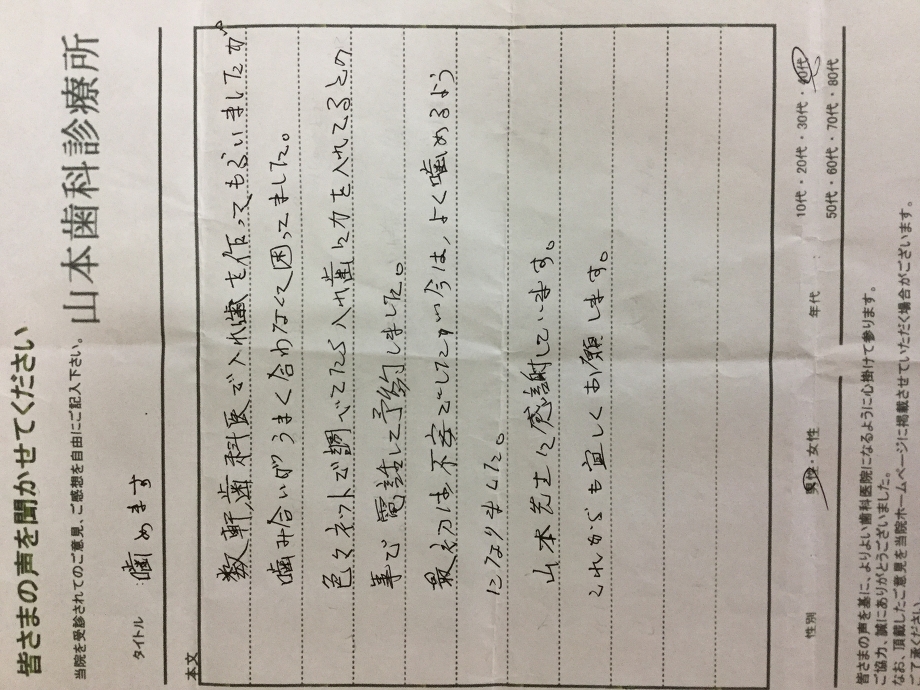 皆さまの声を聞かせてください
当院を受診されてのご意見、ご感想を自由にご記入下さい。
山本歯科診療所
タイトル 噛めます
本文
数軒、歯科医で入れ歯を作ってもらいましたが
噛み合いがうまく合わなくて困ってました。
色々ネットで調べてたら入れ歯に力を入れてるとの
事で電話して予約しました。
最初は不安でしたが今は、よく噛めるよう
になりました。
山本先生に感謝しています。
これからも宜しくお願いします。
性別 男性・女性 年代 10代・20代・30代・40代・
50代・60代・70代・80代
皆さまの声を基に、よりよい歯科医院になるように心掛けて参ります。
ご協力、誠にありがとうございました。
なお、頂戴したご意見を当院ホームページに掲載させていただく場合がございます。
ご了承ください